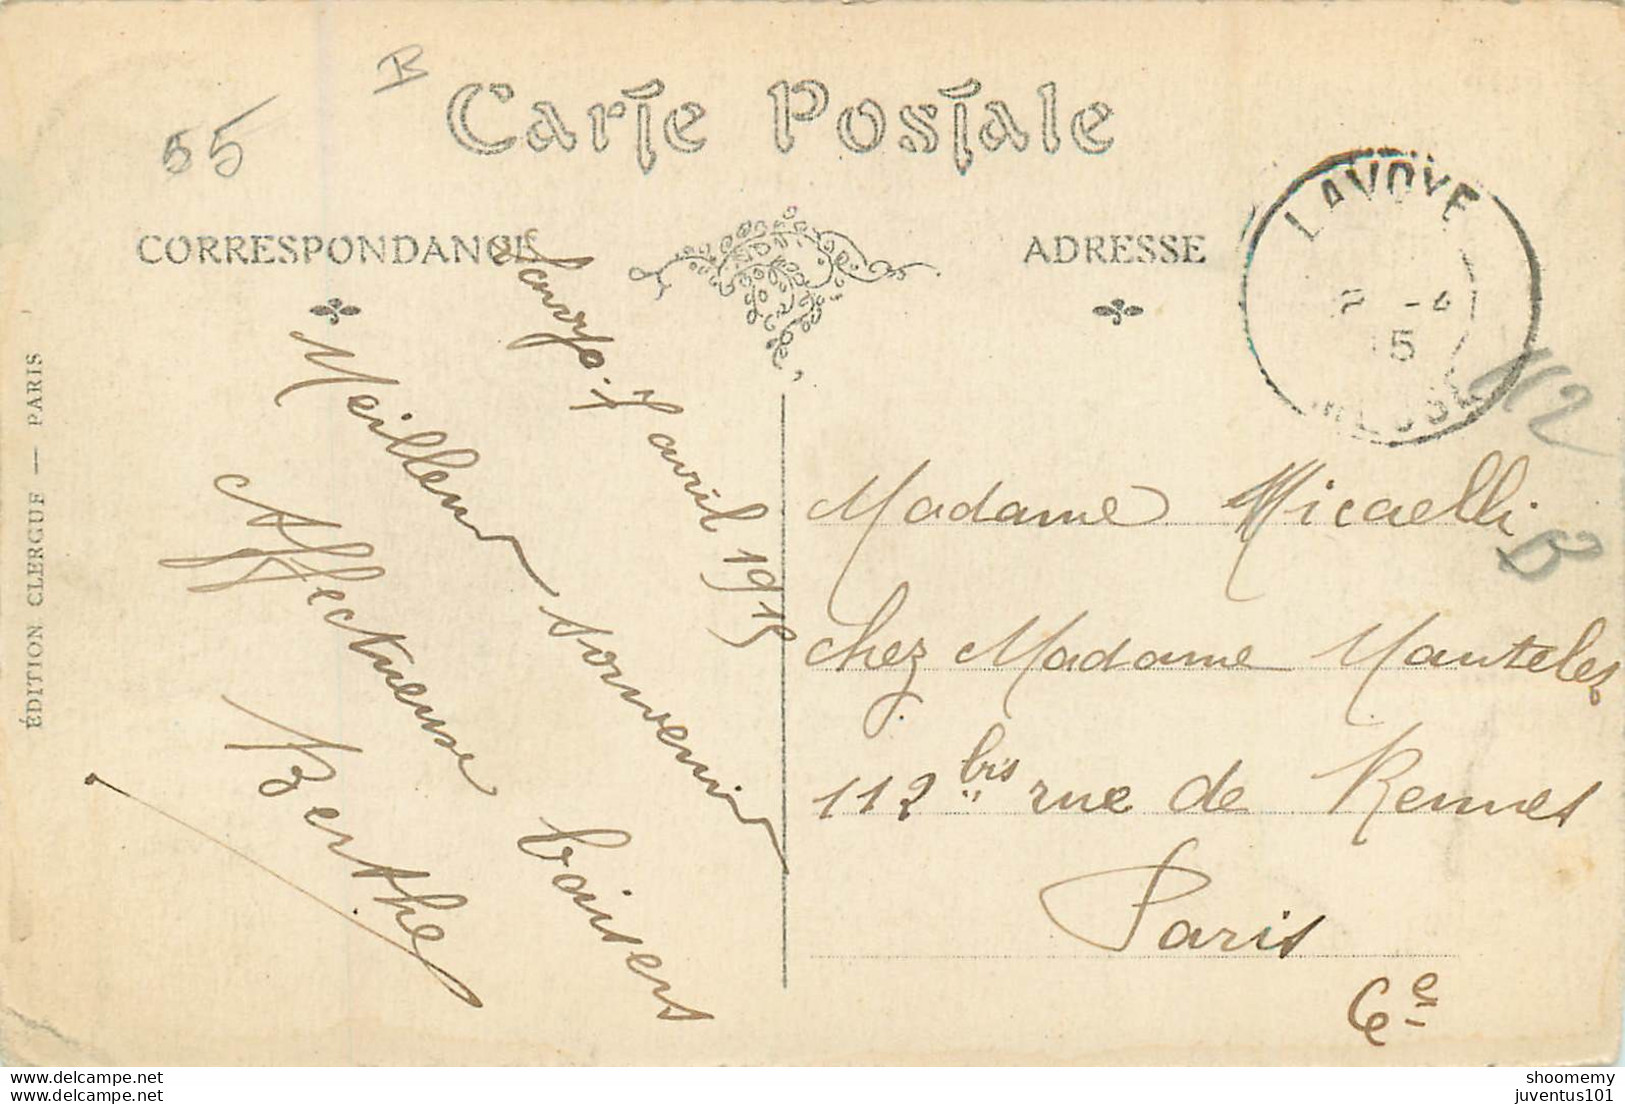 B
55
Carte Postale
CORRESPONDANCE
ADRESSE
LAVOYE
-4
15
MEUSE
112
B
ÉDITION CLERGUE — PARIS
Lavoye. 7 avril 1915
Meilleur souvenir
Affectueux baisers
Berthe
Madame Micaelli
chez Madame Manteles
112 bis rue de Rennes
Paris
6e
shoomemy
juventus101
https://www.delcampe.net